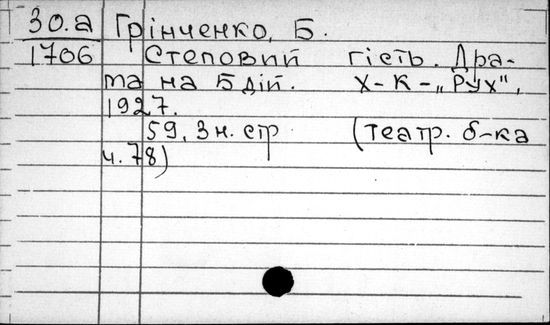 30.а Грінченко, Б.
1706 Степовий гість. Дра-
ма на 5 дій. Х-К-„РУХ",
1927.
59, 3 н. стр (театр. б-ка
ч. 78)